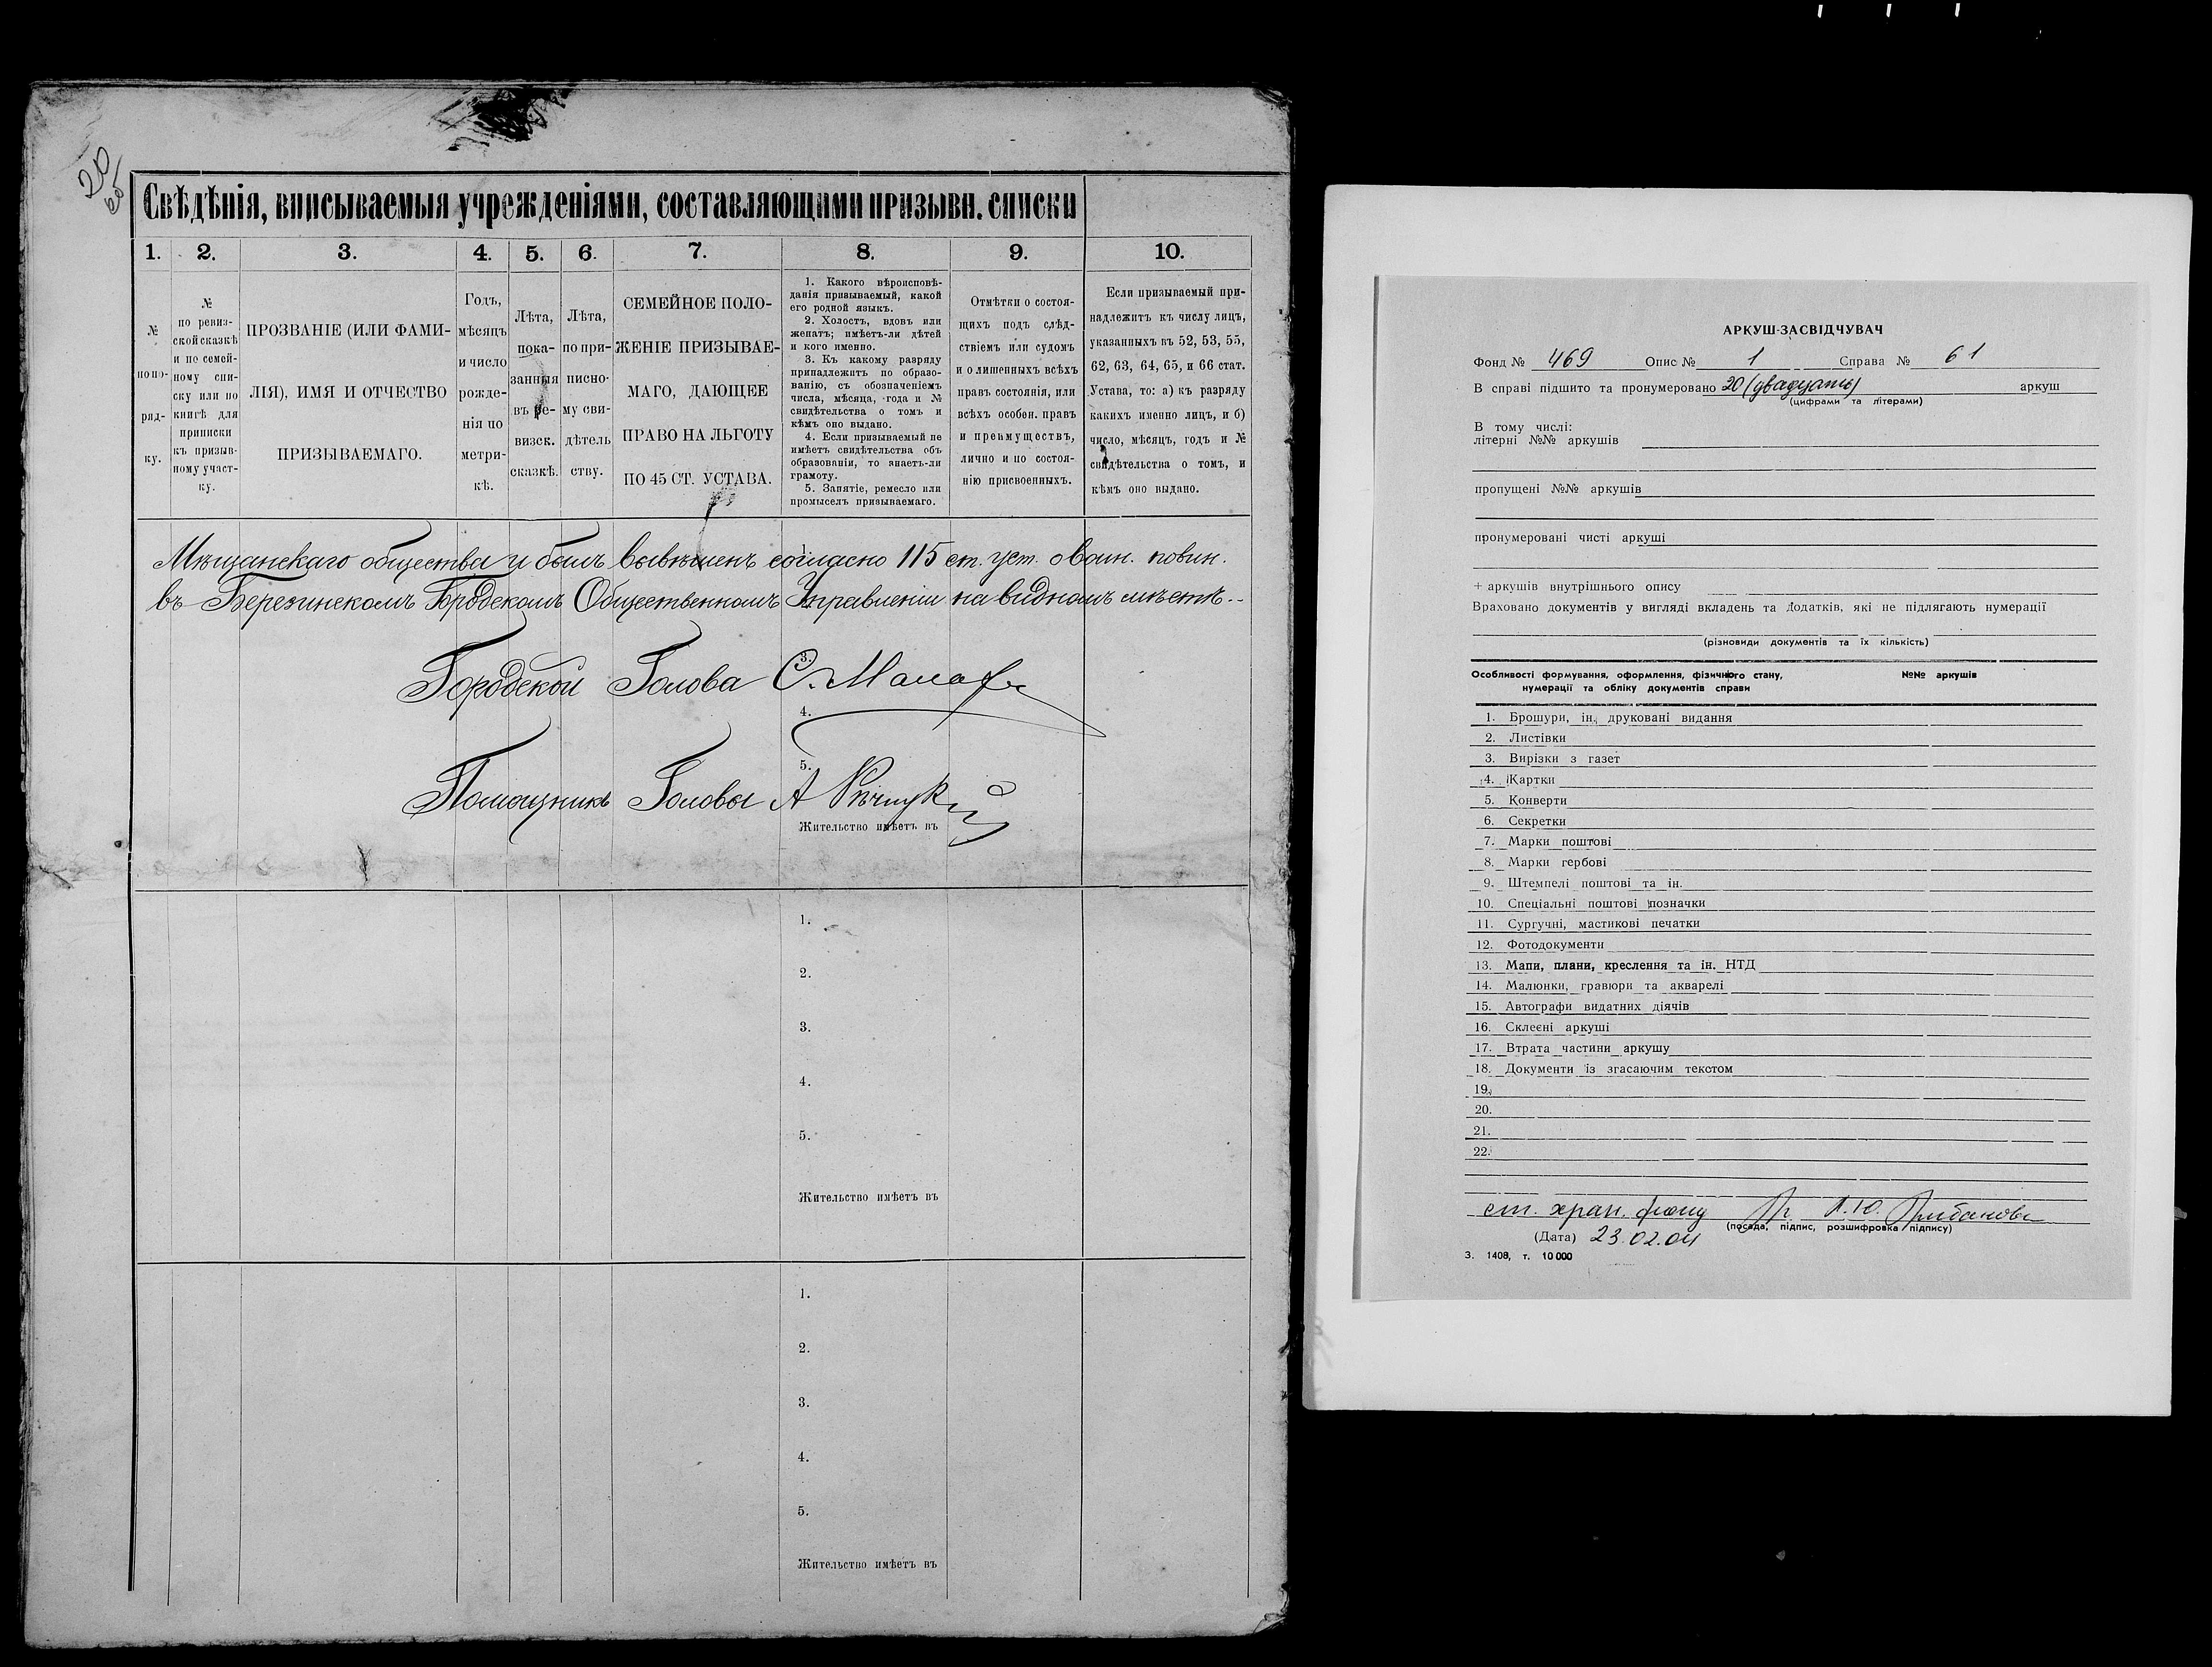 20
об
Свѣдѣнія, вписываемыя учрежденіями, составляющими призывн. списки
1. 2. 3. 4. 5. 6. 7. 8. 9. 10.
№
по по-
ряд-
ку.
№
по ревиз-
ской сказкѣ
и по семей-
ному спи-
ску или по
книгѣ для
приписки
къ призыв-
ному участ-
ку.
ПРОЗВАНІЕ (ИЛИ ФАМИ-
ЛІЯ), ИМЯ И ОТЧЕСТВО
ПРИЗЫВАЕМАГО.
Годъ,
мѣсяцъ
и число
рожде-
нія по
метри-
кѣ.
Лѣта,
пока-
занныя
въ ре-
визск.
сказкѣ.
Лѣта,
по при-
писно-
му сви-
дѣтель
ству.
СЕМЕЙНОЕ ПОЛО-
ЖЕНІЕ ПРИЗЫВАЕ-
МАГО, ДАЮЩЕЕ
ПРАВО НА ЛЬГОТУ
ПО 45 СТ. УСТАВА.
1. Какого вѣроисповѣ-
данія призываемый, какой
его родной языкъ.
2. Холостъ, вдовъ или
женатъ; имѣетъ-ли дѣтей
и кого именно.
3. Къ какому разряду
принадлежитъ по образо-
ванію, съ обозначеніемъ
числа, мѣсяца, года и №
свидѣтельства о томъ и
кѣмъ оно выдано.
4. Если призываемый не
имѣетъ свидѣтельства объ
образованіи, то знаетъ-ли
грамоту.
5. Занятіе, ремесло или
промыселъ призываемаго.
Отмѣтки о состоя-
щихъ подъ слѣд-
ствіемъ или судомъ
и о лишенныхъ всѣхъ
правъ состоянія, или
всѣхъ особен. правъ
и преимуществъ,
лично и по состоя-
нію присвоенныхъ.
Если призываемый при-
надлежитъ къ числу лицъ,
указанныхъ въ 52, 53, 55,
62, 63, 64, 65, и 66 стат.
Устава, то: а) къ разряду
какихъ именно лицъ, и б)
число, мѣсяцъ, годъ и №
свидѣтельства о томъ, и
кѣмъ оно выдано.
Мѣщанскаго общества и былъ вывѣшенъ согласно 115 ст. уст. о воин. повин.
въ Березинскомъ Городскомъ Общественномъ Управленіи на видномъ мѣстѣ.
3.
Городской Голова С.
4.
5.
Помощникъ Головы А
Жительство имѣетъ въ
1.
2.
3.
4.
5.
Жительство имѣетъ въ
1.
2.
3.
4.
5.
Жительство имѣетъ въ
АРКУШ-ЗАСВІДЧУВАЧ
Фонд № 469 Опис № 1 Справа № 61
В справі підшито та пронумеровано 20 (двадцать) аркуш
(цифрами та літерами)
В тому числі:
літерні №№ аркушів
пропущені №№ аркушів
пронумеровані чисті аркуші
+ аркушів внутрішнього опису
Враховано документів у вигляді вкладень та додатків, які не підлягають нумерації
(різновиди документів та їх кількість)
Особливості формування, оформлення, фізичного стану, №№ аркушів
нумерації та обліку документів справи
1. Брошури, ін. друковані видання
2. Листівки
3. Вирізки з газет
4. Картки
5. Конверти
6. Секретки
7. Марки поштові
8. Марки гербові
9. Штемпелі поштові та ін.
10. Спеціальні поштові позначки
11. Сургучні, мастикові печатки
12. Фотодокументи
13. Мапи, плани, креслення та ін. НТД
14. Малюнки, гравюри та акварелі
15. Автографи видатних діячів
16. Склеєні аркуші
17. Втрата частини аркушу
18. Документи із згасаючим текстом
19.
20.
21.
22.
ст. хран. фонд
(посада, підпис, розшифровка підпису)
(Дата) 23.02.04
З. 1408, т. 10 000